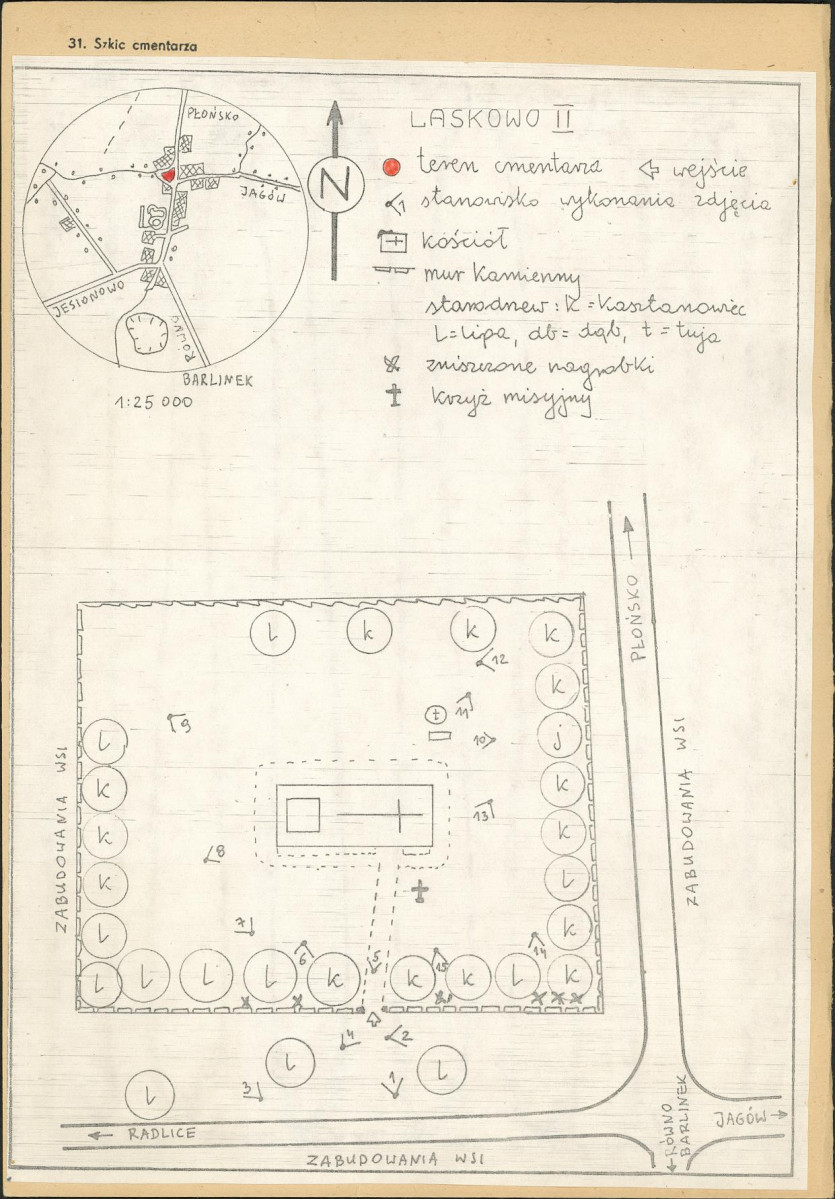 31. Szkic cmentarza
PŁOŃSKO
JAGÓW
JESIONOWO
RÓWNO
BARLINEK
1:25 000
N
LASKOWO II
teren cmentarza
wejście
1 stanowisko wykonania zdjęcia
kościół
mur kamienny
starodrzew: k = kasztanowiec
L = lipa, db = dąb, t = tuja
zniszczone nagrobki
krzyż misyjny
PŁOŃSKO
l k k k
12
k
9
11
t
l
10
j
ZABUDOWANIA WSI
ZABUDOWANIA WSI
k
k
13
k
k
8
k
l
7
l
k
6
5
15
14
l l l l k k k l k
4
2
l
l
3
1
l
RADLICE
RÓWNO
BARLINEK
JAGÓW
ZABUDOWANIA WSI